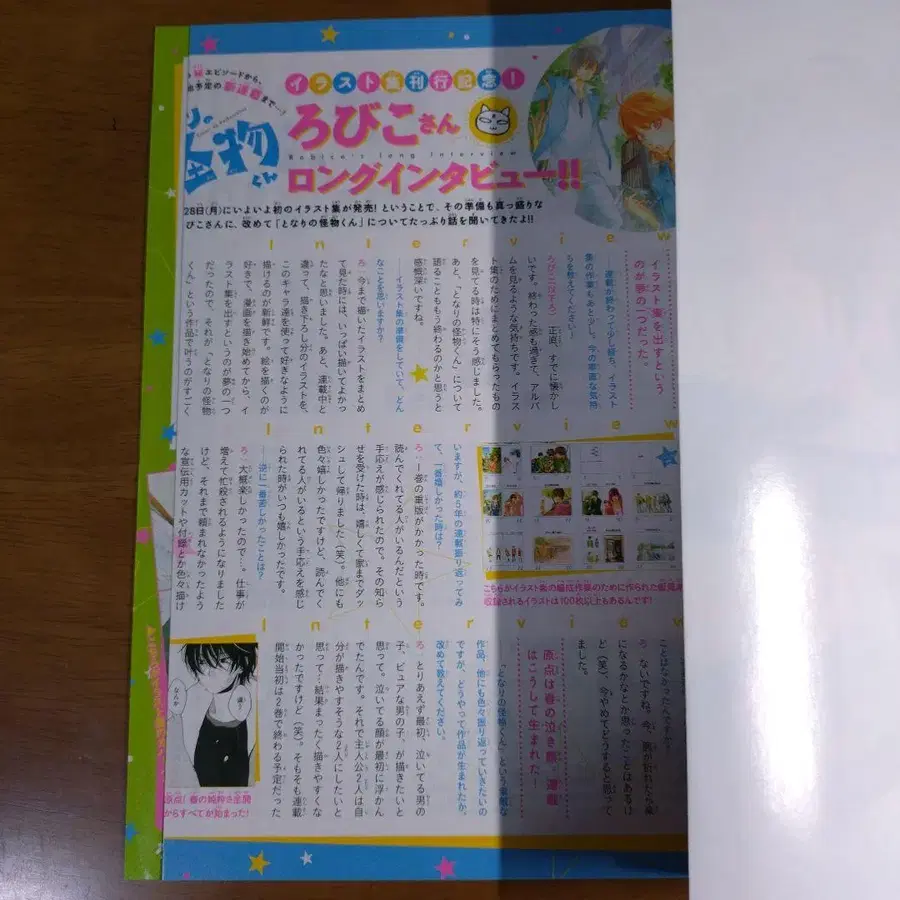 エピソードから、
予定の新連載まで…!
物
くん
イラスト集刊行記念!
ろびこさん
Robico's long Interview
ロングインタビュー!!
28日(月)にいよいよ初のイラスト集が発売!ということで、その準備も真っ盛りな
びこさんに、改めて「となりの怪物くん」についてたっぷり話を聞いてきたよ!!
Interview
イラスト集を出すという
のが夢の一つだった。
―連載が終わって少し経ち、イラスト
集の作業もあと少し。今の率直な気持
ちを教えてください!
ろびこ(以下ろ) 正直、すでに懐かし
いです。終わった感も過ぎて、アルバ
ムを見るような気持ちです。イラス
ト集のためにまとめてもらったもの
を見てる時は特にそう感じました。
あと、「となりの怪物くん」について
語ることももう終わるのかと思うと
感慨深いですね。
―イラスト集の準備をしていて、どん
なことを思いますか?
ろ:今まで描いたイラストをまとめ
て見た時には、いっぱい描いてよかっ
たなと思いました。あと、連載中と
違って、描き下ろし分のイラストを、
このキャラ達を使って好きなように
描けるのが新鮮です。絵を描くのが
好きで、漫画を描き始めてから、イ
ラスト集を出すというのが夢の一つ
だったので、それが「となりの怪物
くん」という作品で叶うのがすごく
Interview
こちらがイラスト集の編成作業のために作られた
収録されるイラストは100枚以上もあるんです!
いますが、約5年の連載振り返ってみ
て、一番嬉しかった時は?
ろ:1巻の重版がかかった時です。
読んでくれてる人がいるんだという
手応えが感じられたので。その知ら
せを受けた時は、嬉しくて家までダッ
シュして帰りました(笑)。他にも
色々嬉しかったですけど、読んでく
れてる人がいるという手応えを感じ
られた時がいつも嬉しかったです。
―逆に一番苦しかったことは?
ろ:大概楽しかったので…。仕事が
増えて忙殺されるようになりました
けど、それまで頼まれなかったよう
な宣伝用カットや付録とか色々描け
Interview
ことはなかったんですか?
ろ ないですね。今、腕が折れたら楽
になるかなとか思ったことはあるけ
ど(笑)、今やめてどうすると思って
ました。
原点は春の泣き顔。連載
はこうして生まれた!
「となりの怪物くん」という素敵な
作品、他にも色々振り返っていきたいの
ですが、どうやって作品が生まれたか、
改めて教えてください。
ろ:とりあえず最初、泣いてる男の
子、ピュアな男の子、が描きたいと
思って。泣いてる顔が最初に浮かん
でたんです。それで主人公2人は自
分が描きやすそうな2人にしたいと
思って…結果まったく描きやすくな
かったですけど(笑)。そもそも連載
開始当初は2巻で終わる予定だった
なんか
原点!春の純粋さ全開
からすべてが始まった!